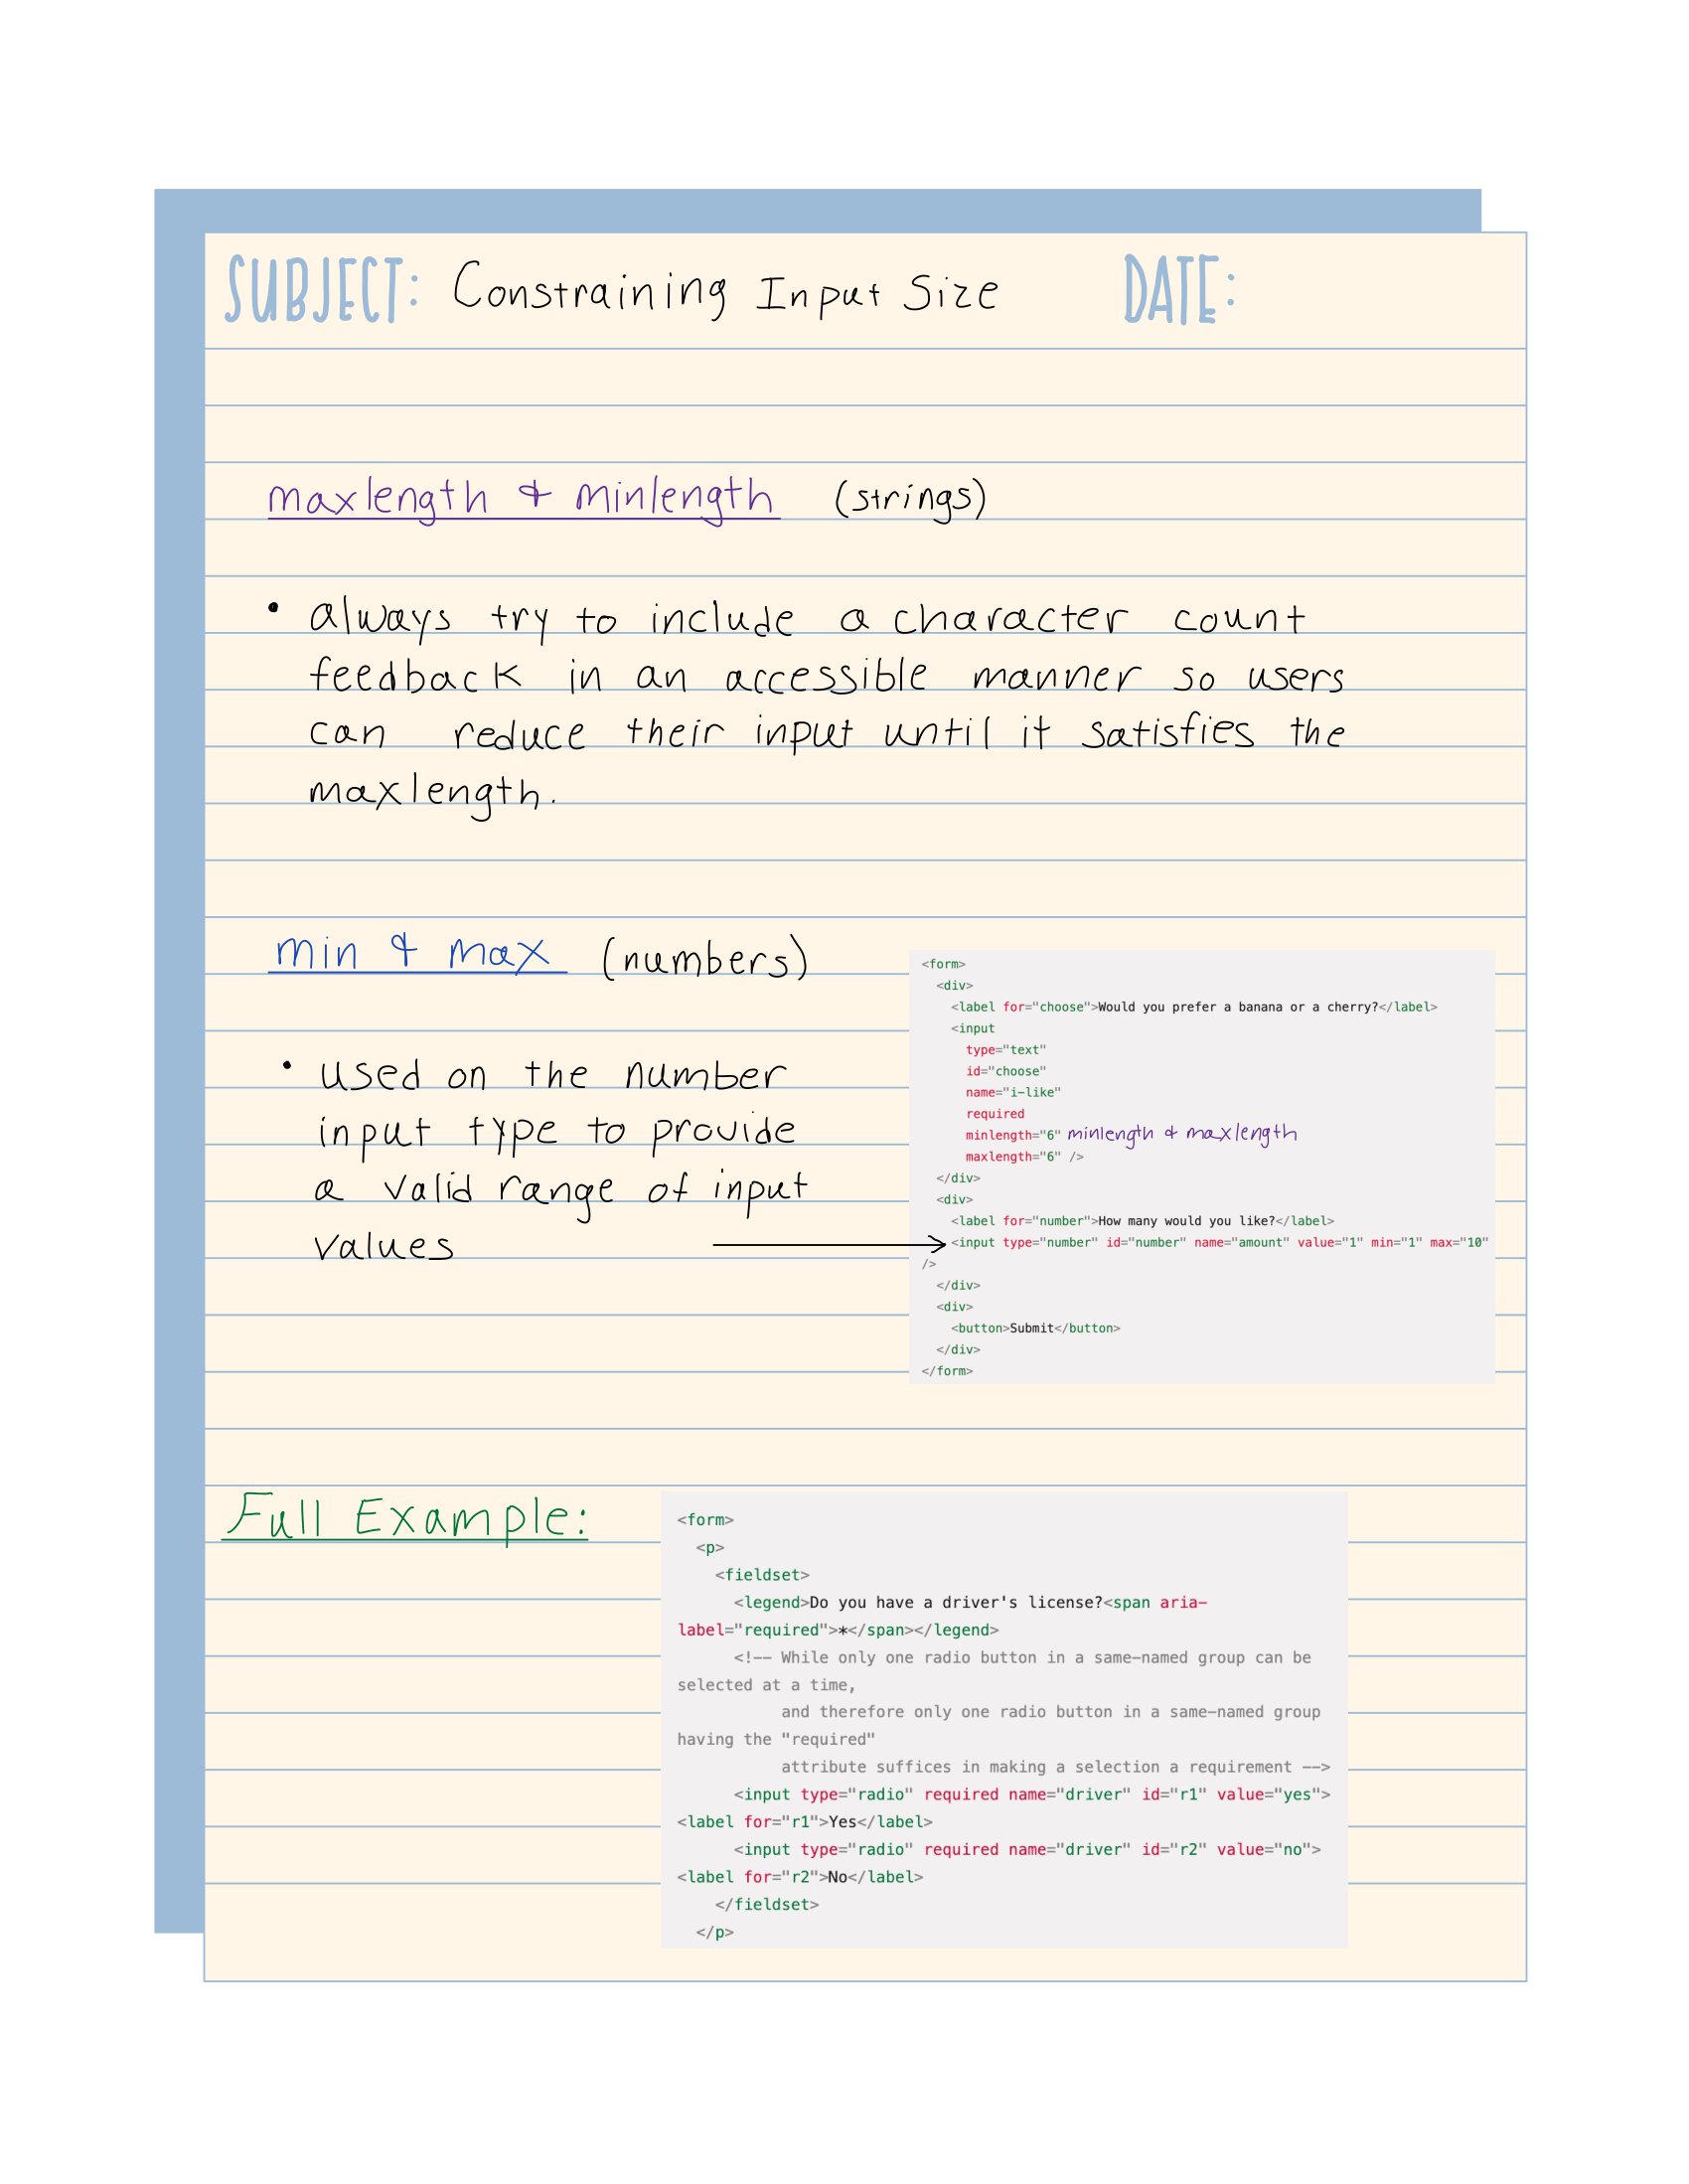 SUBJECT: Constraining Input Size DATE:
maxlength & minlength (strings)
• always try to include a character count
feedback in an accessible manner so users
can reduce their input until it satisfies the
maxlength.
min & max (numbers)
• used on the number
input type to provide
a valid range of input
values
<form>
  <div>
    <label for="choose">Would you prefer a banana or a cherry?</label>
    <input
      type="text"
      id="choose"
      name="i-like"
      required
      minlength="6" minlength & maxlength
      maxlength="6" />
  </div>
  <div>
    <label for="number">How many would you like?</label>
    <input type="number" id="number" name="amount" value="1" min="1" max="10"
/>
  </div>
  <div>
    <button>Submit</button>
  </div>
</form>
Full Example:
<form>
  <p>
    <fieldset>
      <legend>Do you have a driver's license?<span aria-
label="required">*</span></legend>
      <!-- While only one radio button in a same-named group can be
selected at a time,
           and therefore only one radio button in a same-named group
having the "required"
           attribute suffices in making a selection a requirement -->
      <input type="radio" required name="driver" id="r1" value="yes">
<label for="r1">Yes</label>
      <input type="radio" required name="driver" id="r2" value="no">
<label for="r2">No</label>
    </fieldset>
  </p>